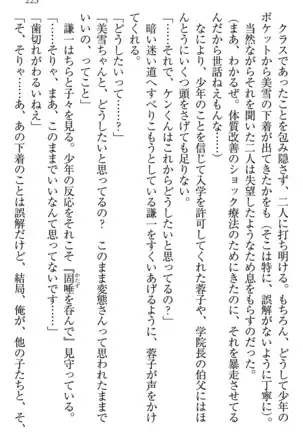 223
クラスであったことを包み隠さず、二人に打ち明ける。もちろん、どうして少年の
ポケットから美雪の下着が出てきたかをも（そこは特に、誤解がないように丁寧に）。
当然ながらそれを聞いた二人は失望したようなため息をもらすのだった。
（まあ、わかるぜ。体質改善のショック療法のためにきたのに、それを暴走させてる
んだから世話ねえもんな……）
なにより、少年のことを信じて入学を許可してくれた蓉子や、学院長の伯父にはほ
んとうにいくつ頭をさげても足りない。
「……それで、ケンくんはこれからどうしたいと思ってるの？」
暗い迷い道へすべりこもうとしている謙一をすくいあげるように、蓉子が声をかけ
てくれる。
「どうしたいって……？」
「美雪ちゃんと、どうしたいと思ってるのかな。このまま変態さんって思われたままで
いいの、って……」
「……そりゃ、まあ、このままでいいなんて思ってないです……」
謙一はちらと子々を見る。少年の反応をそれこそ『固唾を呑んで』見守っている。
かたず
「歯切れがわるいねえ」
「そ、そりゃ……あ、あの下着のことは誤解だけど、結局、俺が、他の子たちと、そ、